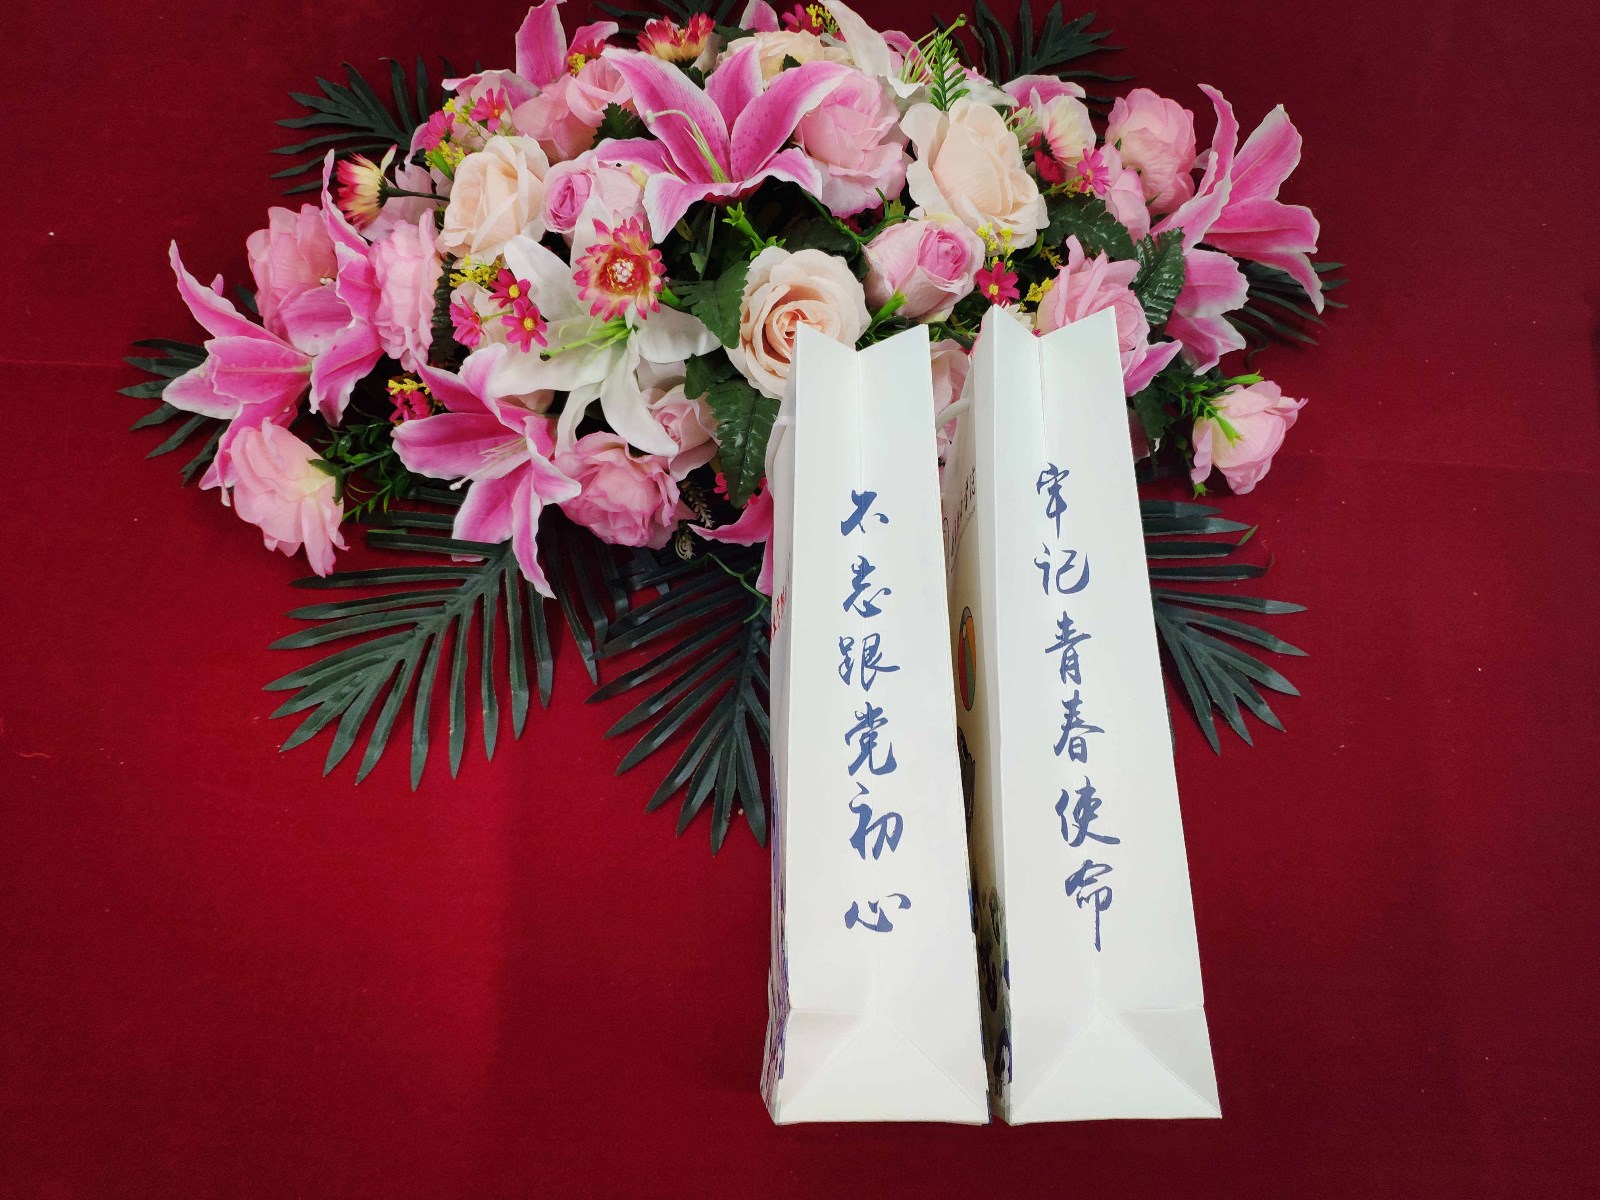 不忘跟党初心
牢记青春使命